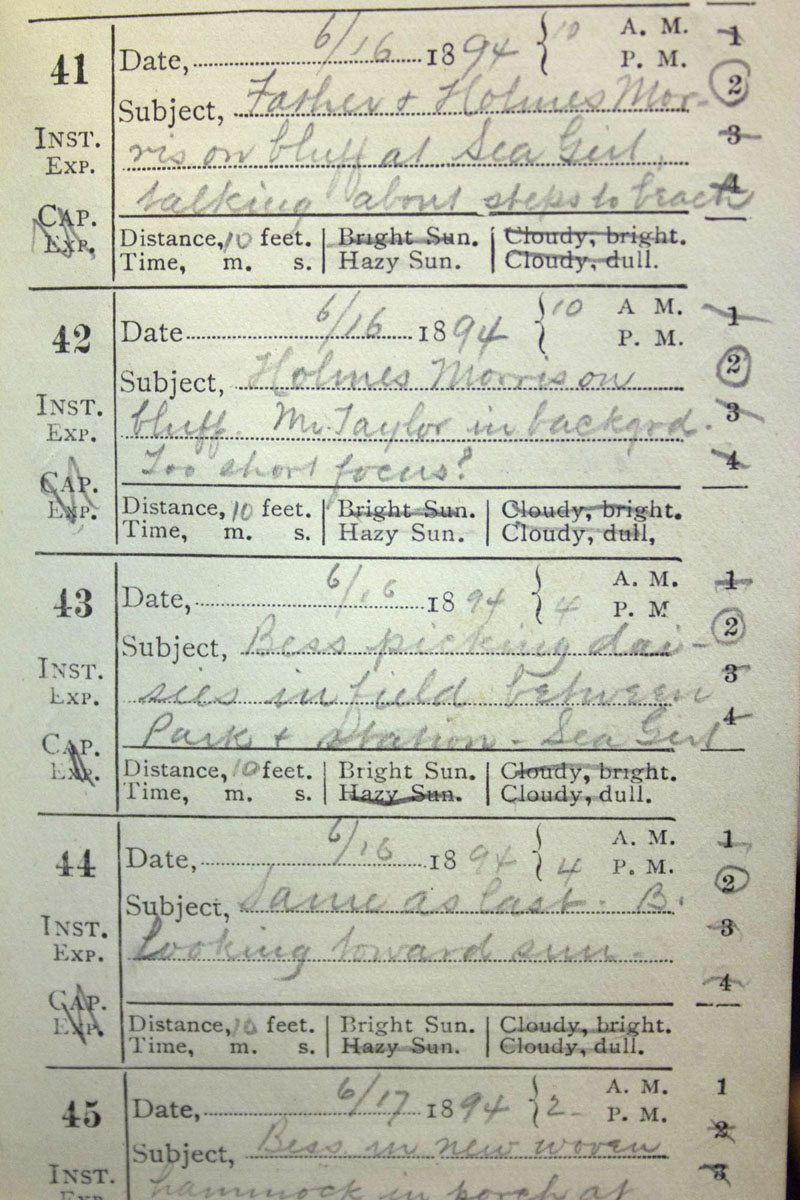 41 Date, 6/16 1894 { 10 A. M. 1
P. M. 2
Subject, Father + Holmes Mor-
INST. EXP. ris on bluff at Sea Girt, 3
talking about steps to beach 4
CAP. EXP. Distance, 10 feet. Bright Sun. Cloudy, bright.
Time, m. s. Hazy Sun. Cloudy, dull.
42 Date 6/16 1894 { 10 A M. 1
P. M.
Subject, Holmes Morris on 2
INST. EXP. bluff. Mr. Taylor in backgrd. 3
Too short focus? 4
CAP. EXP. Distance, 10 feet. Bright Sun. Cloudy, bright.
Time, m. s. Hazy Sun. Cloudy, dull,
43 Date, 6/16 1894 { 4 A. M. 1
P. M
Subject, Bess picking dai- 2
INST. EXP. sies in field between 3
Park + Station - Sea Girt 4
CAP. EXP. Distance, 10 feet. Bright Sun. Cloudy, bright.
Time, m. s. Hazy Sun. Cloudy, dull.
44 Date, 6/16 1894 { 4 A. M. 1
P. M.
Subject, Same as last. B. 2
INST. EXP. Looking toward sun. 3
4
CAP. EXP. Distance, 10 feet. Bright Sun. Cloudy, bright.
Time, m. s. Hazy Sun. Cloudy, dull.
45 Date, 6/17 1894 { 2 A. M. 1
P. M.
Subject, Bess in new woven 2
INST. EXP. hammock in porch at 3